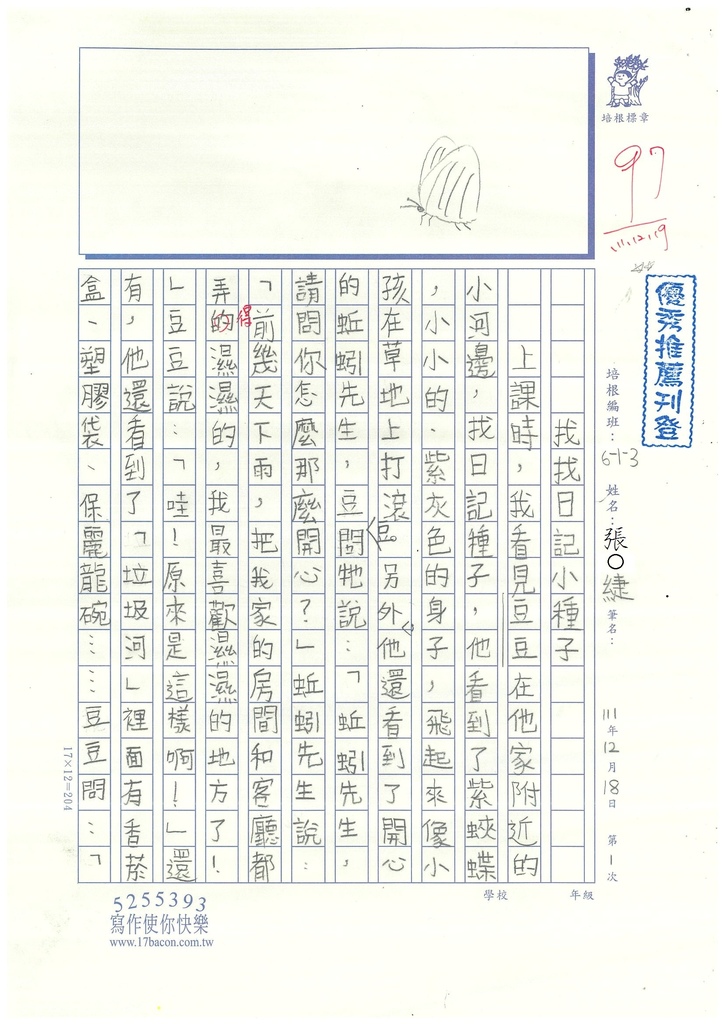 培根標章
97
111.12.19
優秀推薦刊登
培根編班：6-1-3 姓名：張〇緁 筆名： 111年12月18日 第1次
找找日記小種子
上課時，我看見豆豆在他家附近的
小河邊，找日記種子，他看到了紫蛺蝶
，小小的、紫灰色的身子，飛起來像小
孩在草地上打滾。另外，他還看到了開心
的蚯蚓先生，豆豆問牠說：「蚯蚓先生，
請問你怎麼那麼開心？」蚯蚓先生說：
「前幾天下雨，把我家的房間和客廳都
弄的得濕濕的，我最喜歡濕濕的地方了！
」豆豆說：「哇！原來是這樣啊！」還
有，他還看到了「垃圾河」裡面有香菸
盒、塑膠袋、保麗龍碗……豆豆問：「
17×12=204
學校 年級
5255393
寫作使你快樂
www.17bacon.com.tw